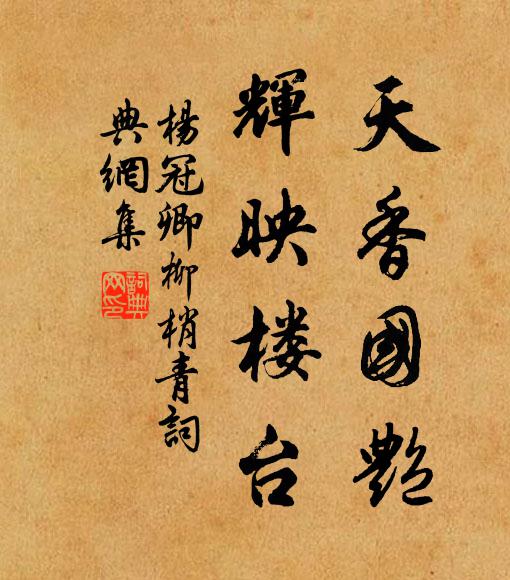 天香國艷
輝映楼台
楊冠卿柳梢青詞
典網集
詞典網印